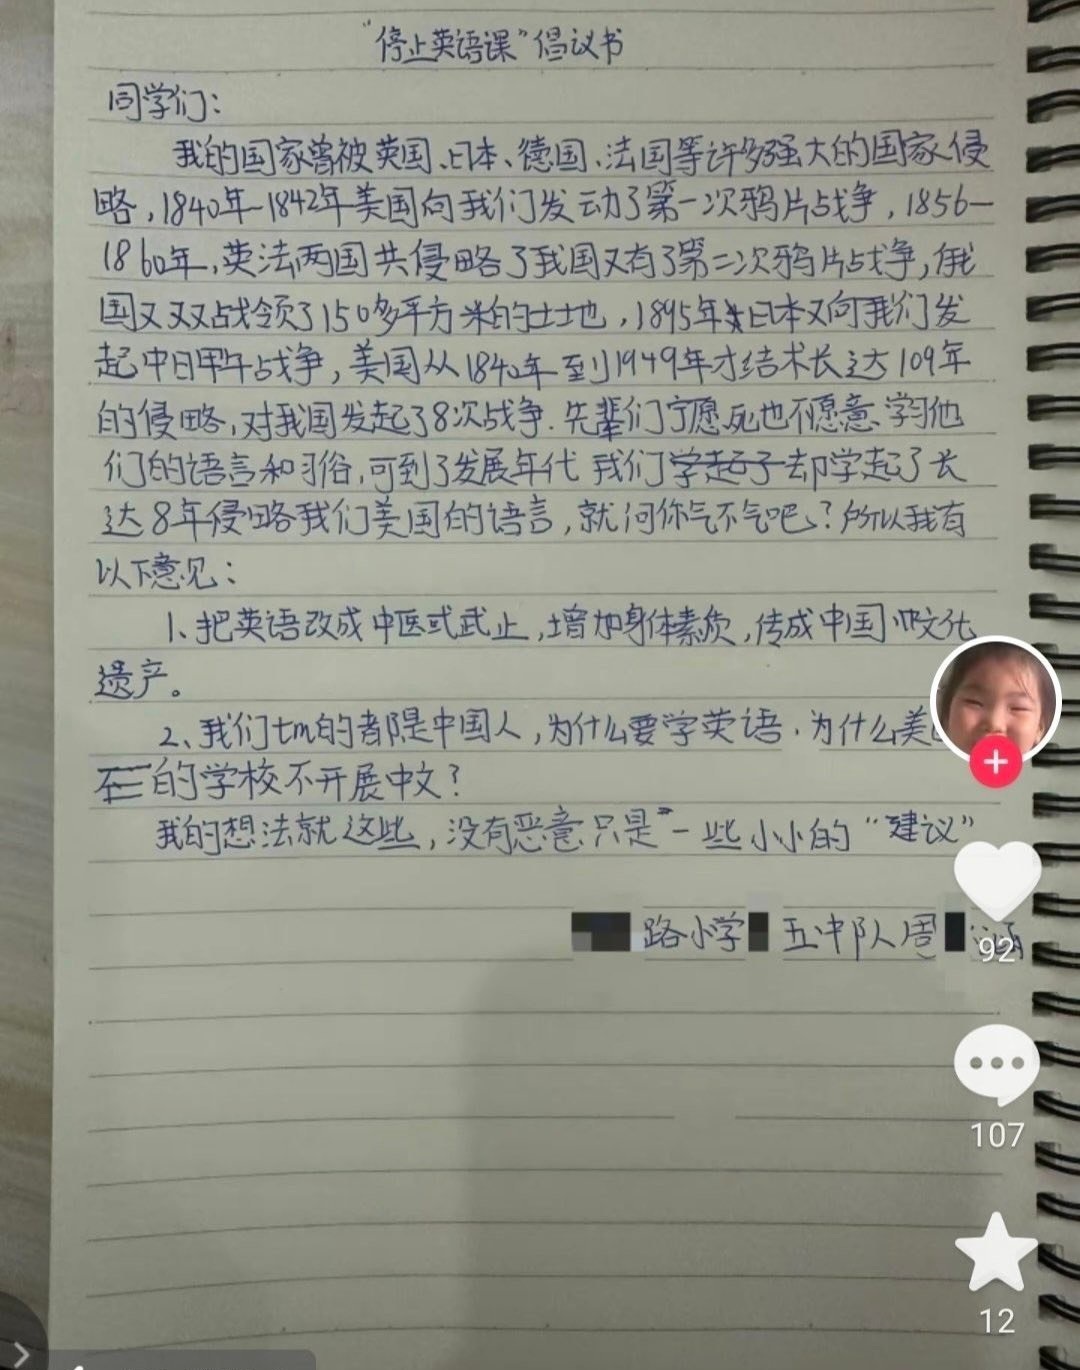 “停止英语课”倡议书
同学们：
我的国家曾被英国、日本、德国、法国等许多强大的国家侵
略，1840年-1842年美国向我们发动了第一次鸦片战争，1856一
1860年，英法两国共侵略了我国又有了第二次鸦片战争，俄
国又双叒战领了150多平方米的土地，1895年日本又向我们发
起中日甲午战争，美国从1840年至到1949年才结术长达109年
的侵略，对我国发起了8次战争.先辈们宁愿死也不愿意学习他
们的语言和习俗，可到了发展年代 我们学起了却学起了长
达8年侵略我们美国的语言，就问你气不气吧？所以我有
以下意见：
1、把英语改成中医或武止，增加身体素质，传成中国文化
遗产。
2、我们tm的者隉中国人，为什么要学英语.为什么美
的学校不开展中文？
我的想法就这些，没有恶意只是”一些小小的“建议”
路小学 五中队周 涵
92
107
12